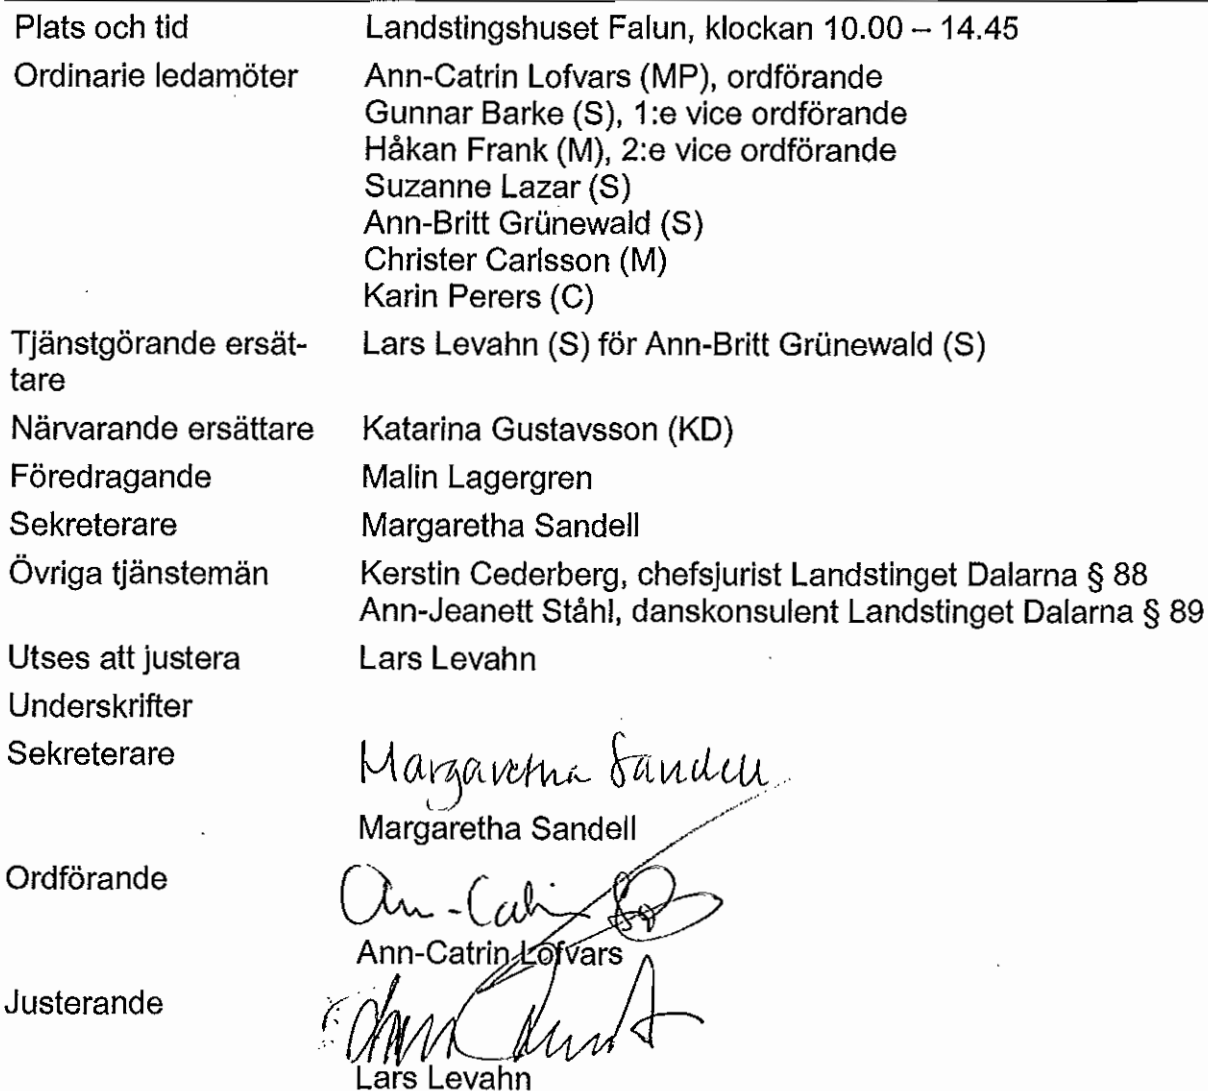 Plats och tid Landstingshuset Falun, klockan 10.00 – 14.45
Ordinarie ledamöter Ann-Catrin Lofvars (MP), ordförande
Gunnar Barke (S), 1:e vice ordförande
Håkan Frank (M), 2:e vice ordförande
Suzanne Lazar (S)
Ann-Britt Grünewald (S)
Christer Carlsson (M)
Karin Perers (C)
Tjänstgörande ersät- Lars Levahn (S) för Ann-Britt Grünewald (S)
tare
Närvarande ersättare Katarina Gustavsson (KD)
Föredragande Malin Lagergren
Sekreterare Margaretha Sandell
Övriga tjänstemän Kerstin Cederberg, chefsjurist Landstinget Dalarna § 88
Ann-Jeanett Ståhl, danskonsulent Landstinget Dalarna § 89
Utses att justera Lars Levahn
Underskrifter
Sekreterare Margaretha Sandell
Margaretha Sandell
Ordförande Ann-Catrin
Ann-Catrin Lofvars
Justerande
Lars Levahn